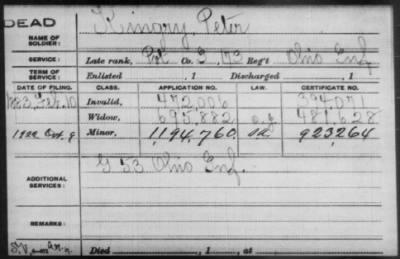 DEAD
Kingry, Peter
NAME OF SOLDIER:
SERVICE: Late rank, Pvt Co. G, 173 Reg't Ohio Inf
TERM OF SERVICE: Enlisted , 1 Discharged , 1
DATE OF FILING. CLASS. APPLICATION NO. LAW. CERTIFICATE NO.
Feb. 10 Invalid, 472,006 394,071
Widow, 695,882 481,628
Minor, 1,194,760 923264
G 53 Ohio Inf.
ADDITIONAL SERVICES:
REMARKS:
Died , 1 , at